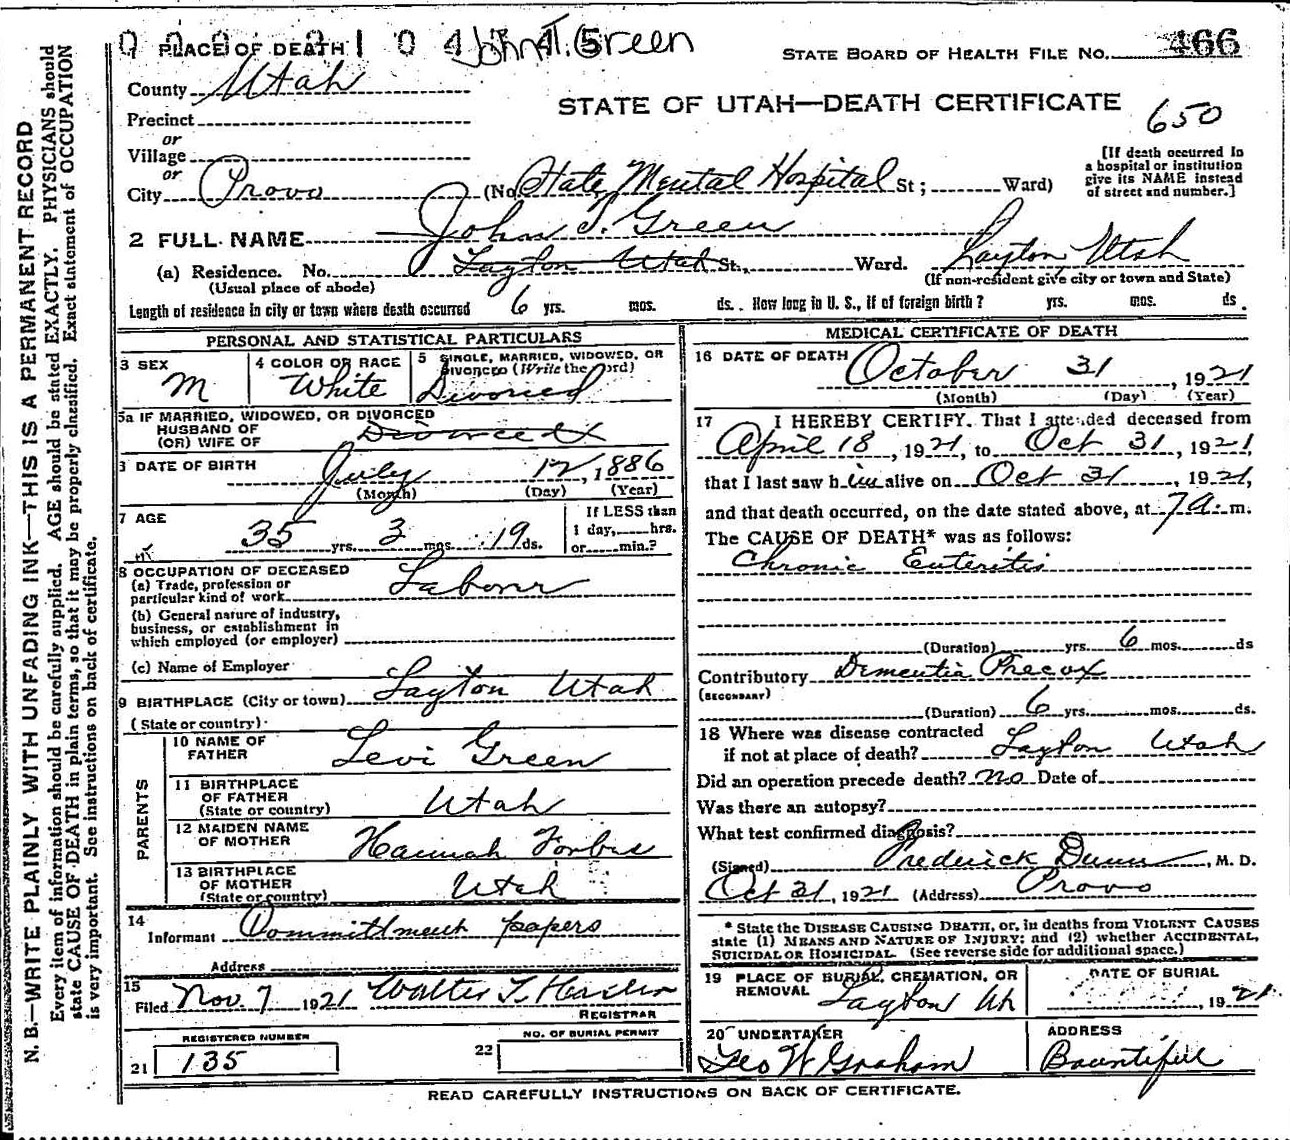 PLACE OF DEATH
John T. Green
STATE BOARD OF HEALTH FILE No. 466
County Utah
STATE OF UTAH—DEATH CERTIFICATE
650
Precinct
or
Village
or
City Provo (No. State Mental Hospital St; Ward)
[If death occurred in a hospital or institution give its NAME instead of street and number.]
2 FULL NAME John T. Green
(a) Residence. No. Layton Utah St., Ward. Layton, Utah
(Usual place of abode) (If non-resident give city or town and State)
Length of residence in city or town where death occurred 6 yrs. mos. ds. How long in U. S., if of foreign birth? yrs. mos. ds.
PERSONAL AND STATISTICAL PARTICULARS
3 SEX M
4 COLOR OR RACE White
5 SINGLE, MARRIED, WIDOWED, OR DIVORCED (Write the word) Divorced
5a IF MARRIED, WIDOWED, OR DIVORCED
HUSBAND OF
(OR) WIFE OF Divorced
DATE OF BIRTH July 12, 1886
(Month) (Day) (Year)
7 AGE 35 yrs. 3 mos. 19 ds.
If LESS than
1 day, hrs.
or min.?
8 OCCUPATION OF DECEASED
(a) Trade, profession or
particular kind of work Laborer
(b) General nature of industry,
business, or establishment in
which employed (or employer)
(c) Name of Employer
9 BIRTHPLACE (City or town) Layton Utah
(State or country)
PARENTS
10 NAME OF
FATHER Levi Green
11 BIRTHPLACE
OF FATHER
(State or country) Utah
12 MAIDEN NAME
OF MOTHER Hannah Forbes
13 BIRTHPLACE
OF MOTHER
(State or country) Utah
14
Informant Committment papers
Address
15
Filed Nov. 7 1921 Walter T. Hasler
REGISTRAR
REGISTERED NUMBER
21 135
NO. OF BURIAL PERMIT
22
MEDICAL CERTIFICATE OF DEATH
16 DATE OF DEATH October 31, 1921
(Month) (Day) (Year)
17 I HEREBY CERTIFY. That I attended deceased from
April 18, 1921, to Oct 31, 1921,
that I last saw him alive on Oct 31, 1921,
and that death occurred, on the date stated above, at 7 a. m.
The CAUSE OF DEATH* was as follows:
Chronic Enteritis
(Duration) yrs. 6 mos. ds
Contributory Dementia Precox
(SECONDARY)
(Duration) 6 yrs. mos. ds.
18 Where was disease contracted
if not at place of death? Layton Utah
Did an operation precede death? no Date of
Was there an autopsy?
What test confirmed diagnosis?
(Signed) Frederick Dunn, M. D.
Oct 31, 1921 (Address) Provo
* State the DISEASE CAUSING DEATH, or, in deaths from VIOLENT CAUSES
state (1) MEANS AND NATURE OF INJURY; and (2) whether ACCIDENTAL,
SUICIDAL OR HOMICIDAL. (See reverse side for additional space.)
19 PLACE OF BURIAL, CREMATION, OR
REMOVAL Layton Ut
DATE OF BURIAL
, 1921
20 UNDERTAKER
Geo W Graham
ADDRESS
Bountiful
READ CAREFULLY INSTRUCTIONS ON BACK OF CERTIFICATE.
N. B.—WRITE PLAINLY WITH UNFADING INK—THIS IS A PERMANENT RECORD
Every item of information should be carefully supplied. AGE should be stated EXACTLY. PHYSICIANS should
state CAUSE OF DEATH in plain terms, so that it may be properly classified. Exact statement of OCCUPATION
is very important. See instructions on back of certificate.